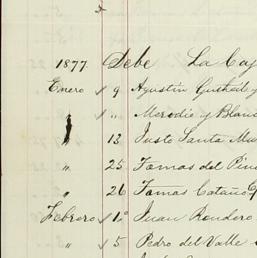 1877 Debe La Caj
Enero √ 9 Agustin y
√ " y Blanc
" 13 Justo Santa Ma
" 25 Tomas del Pin
" 26 Tomas Cataño
Febrero √ 1º Juan Rondero
" √ 5 Pedro del Valle